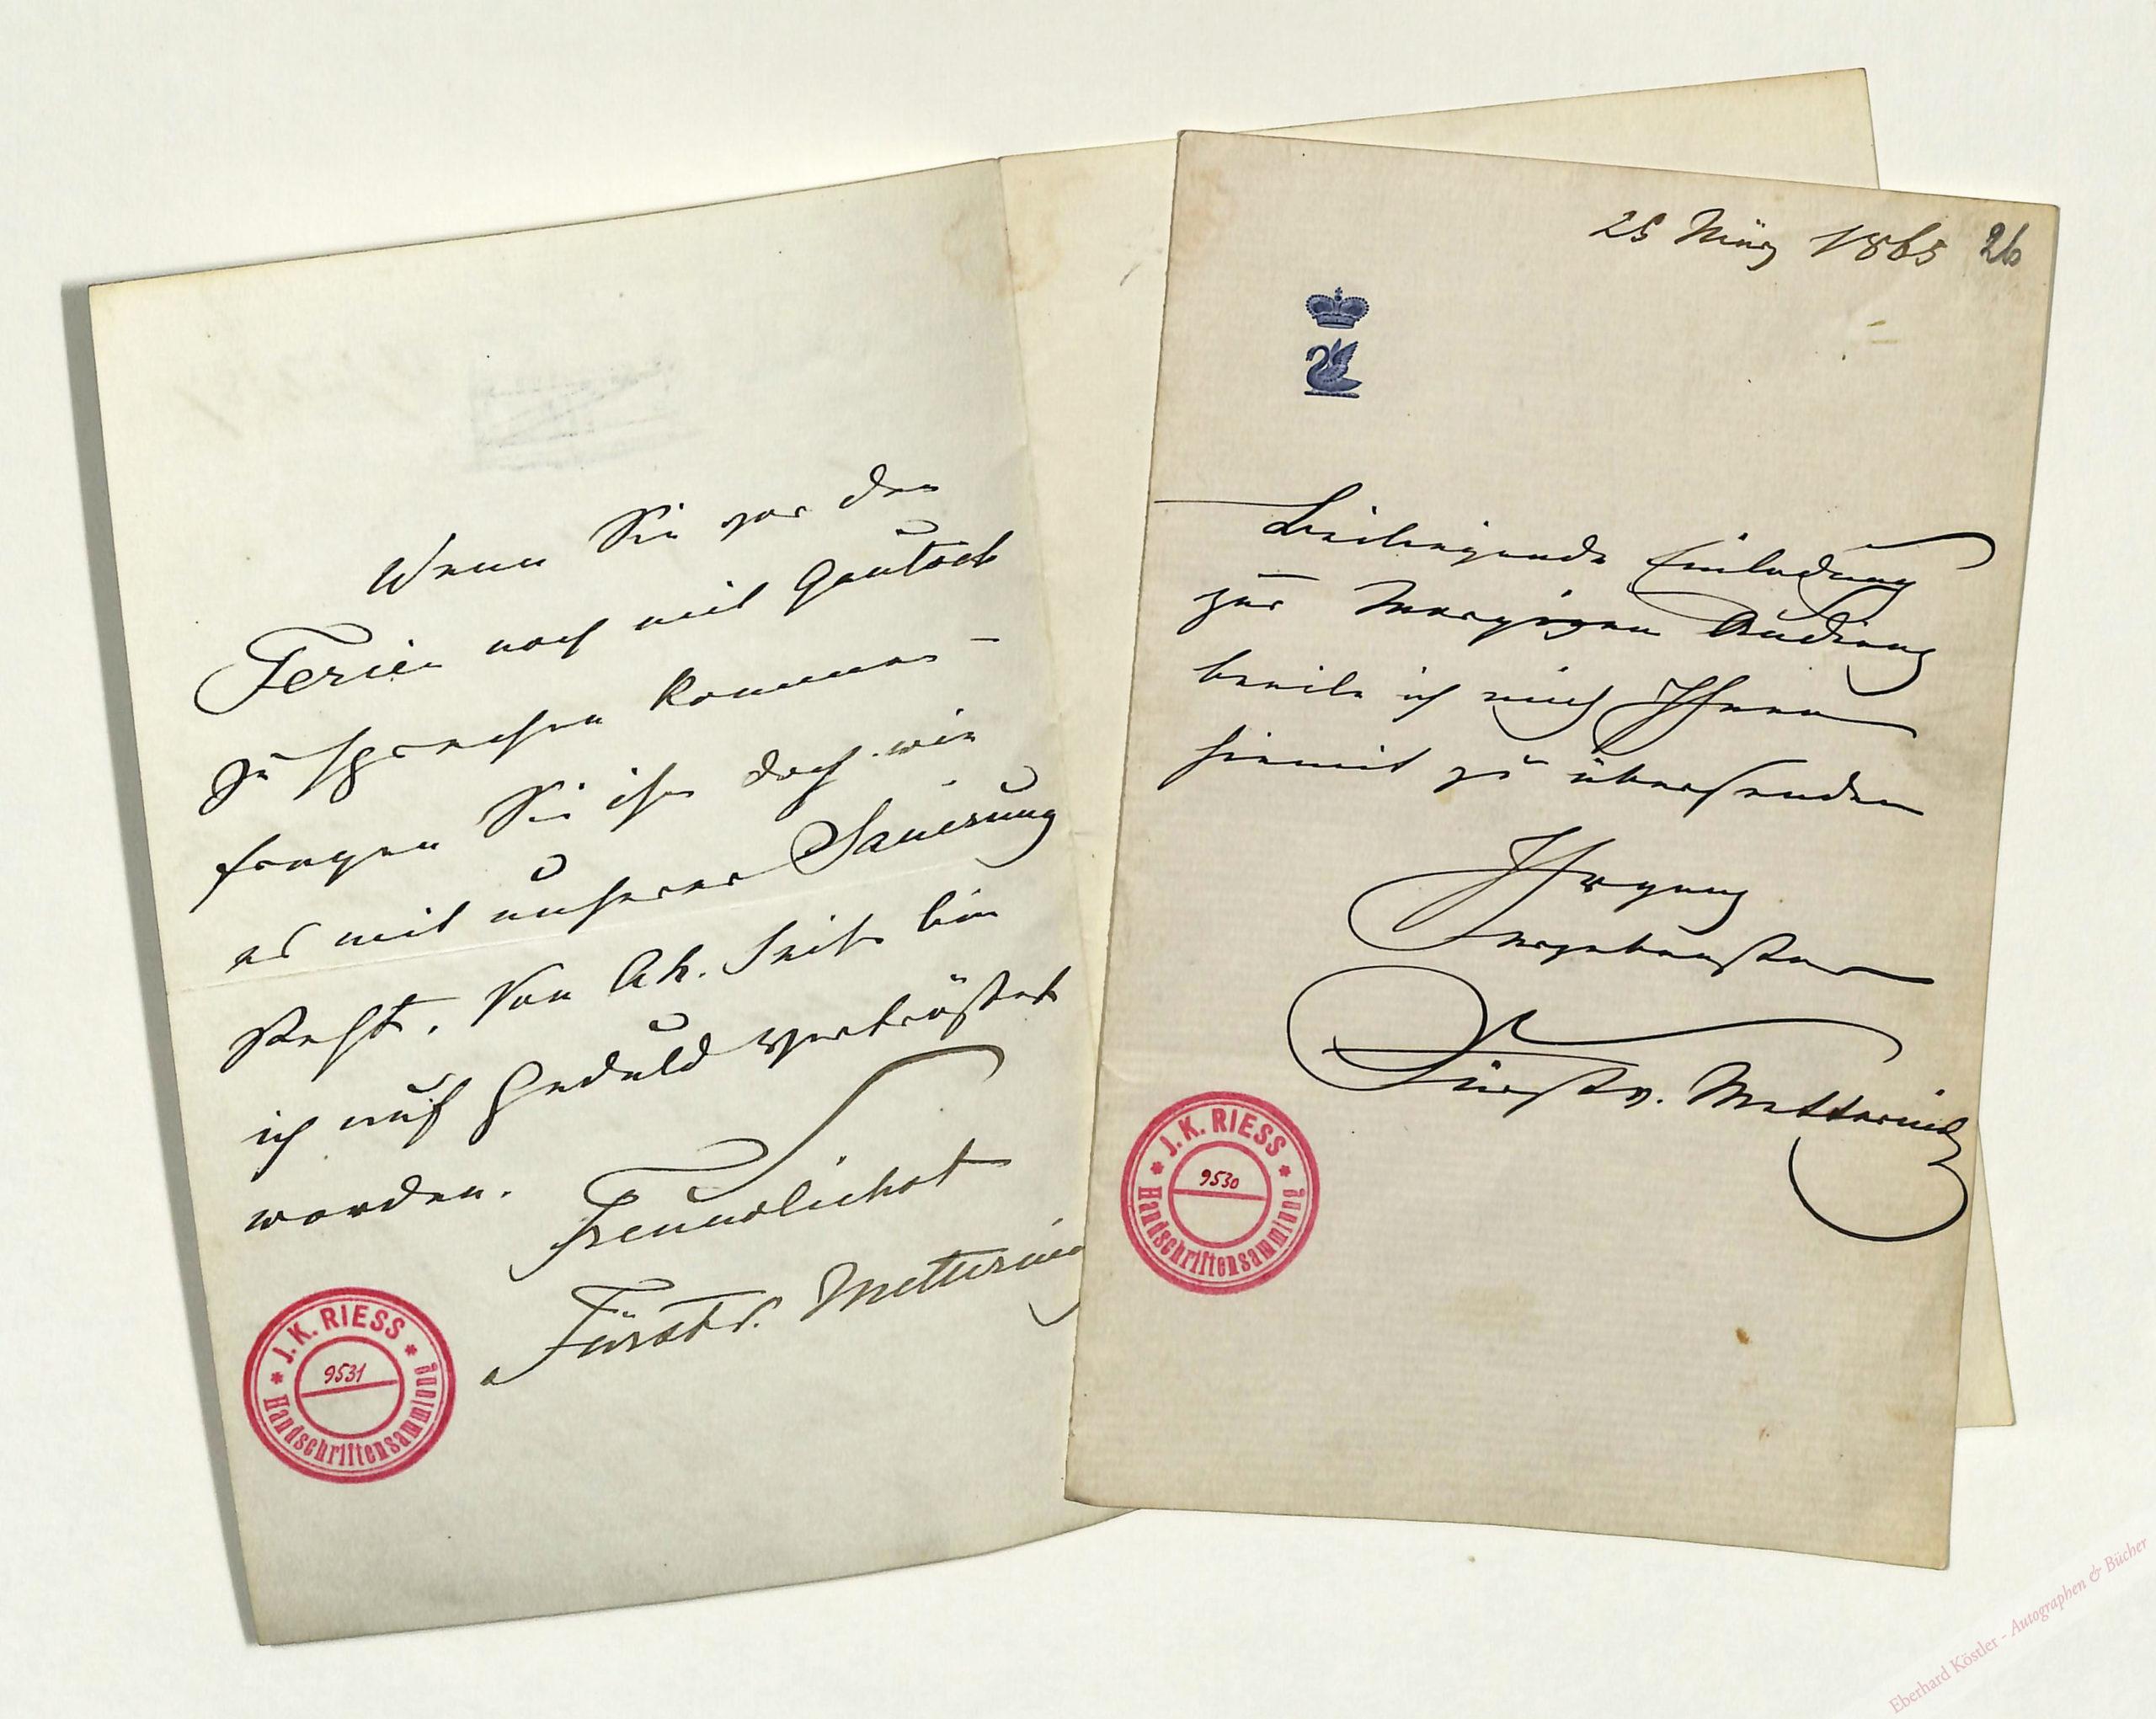 Wenn Sie vor den
Ferien noch mit Gautsch
zu sprechen kommen –
fragen Sie ihn doch wie
es mit unserer Sanierung
steht. Von Ah. Seite bin
ich auf Geduld vertröstet
worden.
Freundlichst
Fürst v. Metternich
J. K. RIESS
9531
Handschriftensammlung
25 März 1865 26
Beiliegende Einladung
zur morgigen Audienz
beeile ich mich Ihnen
hiemit zu übersenden
ergebenster
Fürst v. Metternich
J. K. RIESS
9530
Handschriftensammlung
Eberhard Köstler - Autographen & Bücher